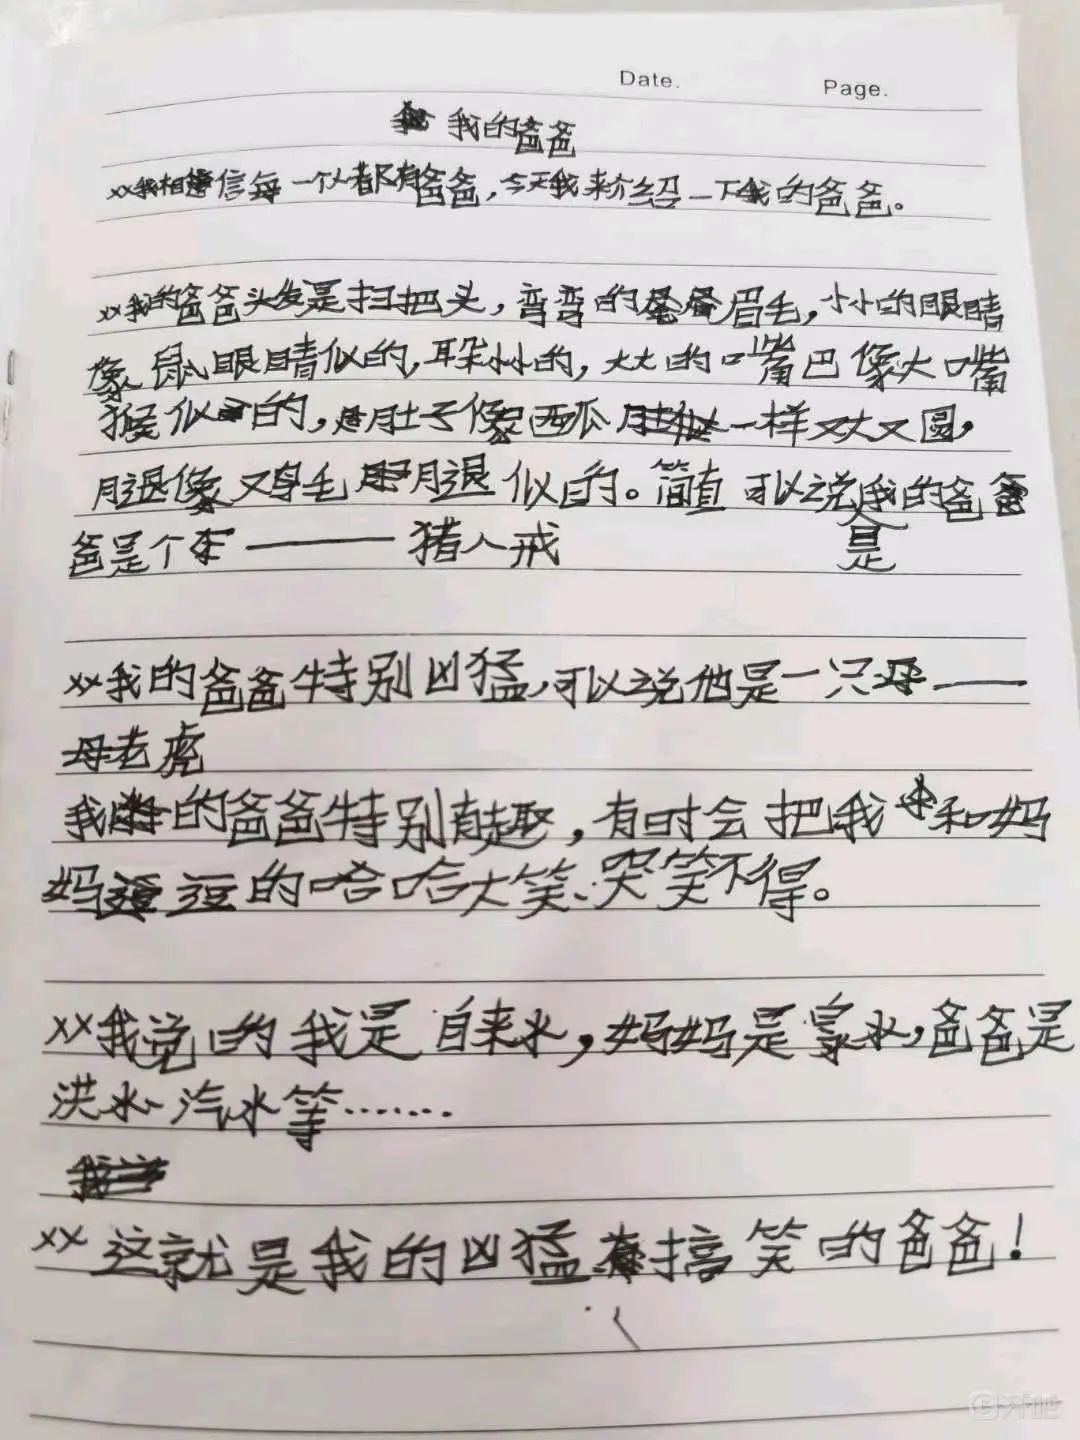 Date. Page.
我的爸爸
xx我相信每一个人都有爸爸,今天我来介绍一下我的爸爸。
xx我的爸爸头发是扫把头,弯弯的眉毛,小小的眼睛
像鼠眼睛似的,耳朵小小的,大大的嘴巴像大嘴
猴似的,肚子像西瓜一样又大又圆,
腿像鸡毛腿似的。简直可以说是我的爸
爸是个 —— 猪八戒
xx我的爸爸特别凶猛,可以说他是一只——
母老虎
我的爸爸特别有趣,有时会把我和妈
妈逗的哈哈大笑、哭笑不得。
xx我觉的我是自来水,妈妈是泉水,爸爸是
洪水、汽水等……
xx这就是我的凶猛搞笑的爸爸!
开吧